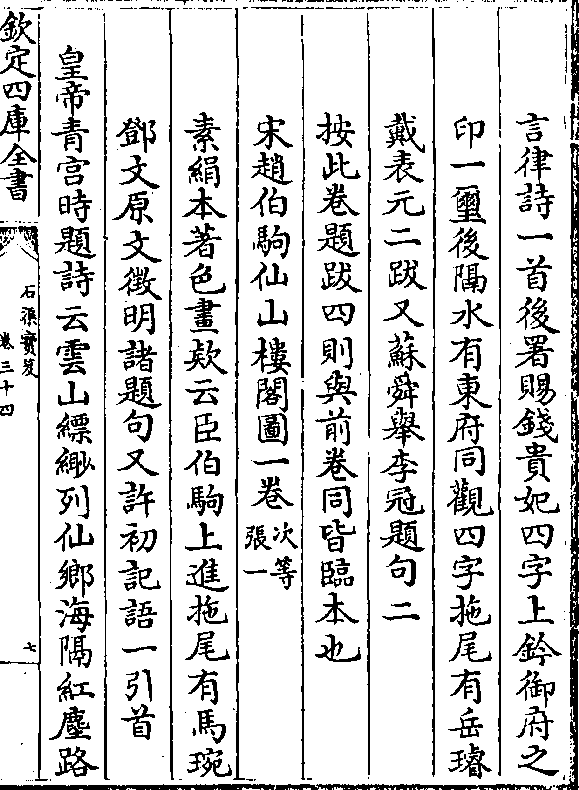 言律詩一首後署賜錢貴妃四字上鈐御府之
印一璽後隔水有東府同觀四字拖尾有岳璿
戴表元二跋又蘇舜舉李冠題句二
按此卷題跋四則與前卷同皆臨本也
宋趙伯駒仙山樓閣圖一卷次等
張一
素絹本著色畫欵云臣伯駒上進拖尾有馬琬
鄧文原文徵明諸題句又許初記語一引首
皇帝青宮時題詩云雲山縹緲列仙鄉海隔紅塵路
欽定四庫全書
石渠寶笈
卷三十四
七